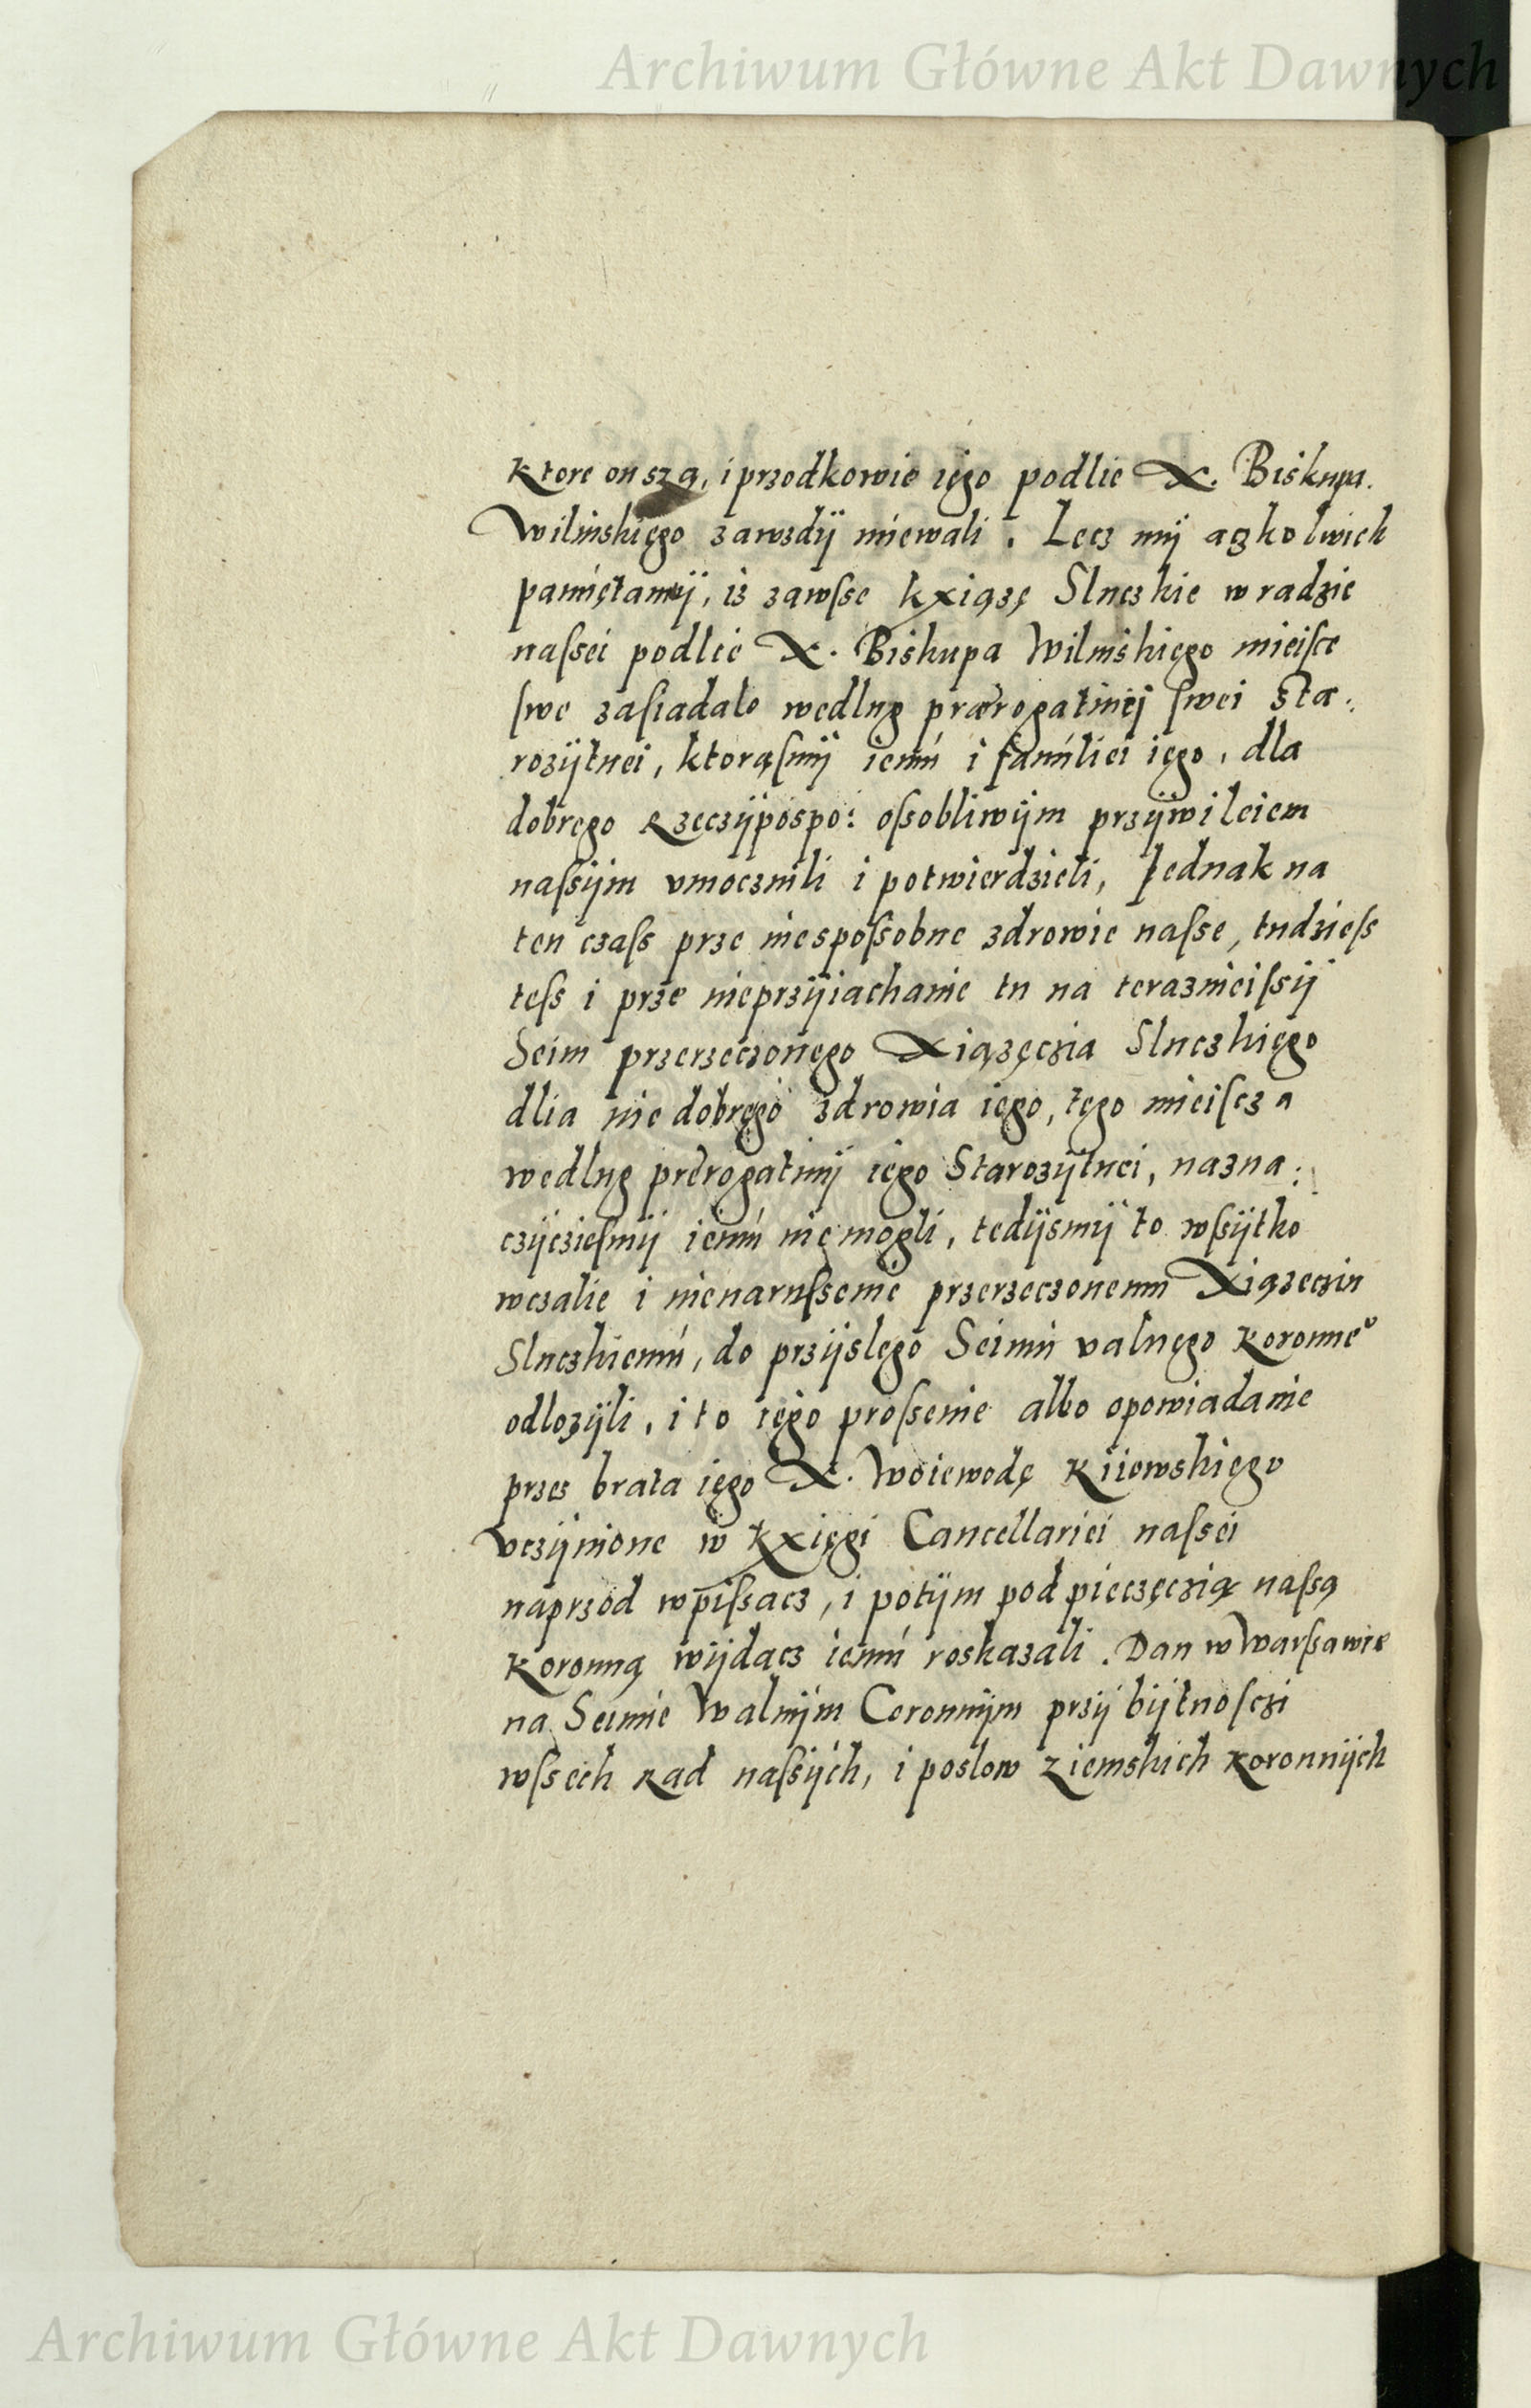 Archiwum Główne Akt Dawnych
Ktore on szą, i przodkowie iego podlie X. Biskupa.
Wilinskięgo zawzdÿ miewali. Lecz mÿ aczkolwiek
pamiętamÿ, is zawſse kxiązę Sluczkie w radzie
naſsei podlie X. Biskupa Wilinskięgo mieiſce
ſwe zaſiadalo wedlug prærogatiwej ſwei sta:
rozÿtnei, ktorąſmÿ iemu i familiei ięgo, dla
dobrego Rzeczÿpospo: oſsobliwÿm przÿwileiem
naſsÿm umocznili i potwierdzieli, Jednak na
ten czaſs prze niespoſsobne zdrowie naſse, tudzieſs
teſs i prze nieprzÿiachanie tu na terazneiſsÿ
Seim przerzeczonęgo Xiązęczia Sluczkięgo
dlia nie dobręgo zdrowia iego, tęgo mieiſcza
wedlug prerogatiwÿ iego Starozÿtnei, nazna:
czÿczieſmÿ iemu nie mogli, tedÿsmÿ to wſsÿtko
wczalie i nienaruſsenie przerzeczonemu Xiązecziu
Sluczkiemu, do przÿslęgo Seimu valnęgo koronneº
odlozÿli, i to ięgo proſsenie albo opowiadanie
przes brata ięgo X. Woiewodę Kiiowskięgo
vczÿnione w kxięgi Cancellariei naſsei
naprzod wpiſsacz, i potÿm pod pieczęczią naſsą
koronną wÿdacz iemu roskazali. Dan w Warſsawie
na Seimie Walnÿm Coronnÿm przÿ bÿtnoſczi
wſsech Rad naſsÿch, i poslow ziemskich koronnÿch
Archiwum Główne Akt Dawnych